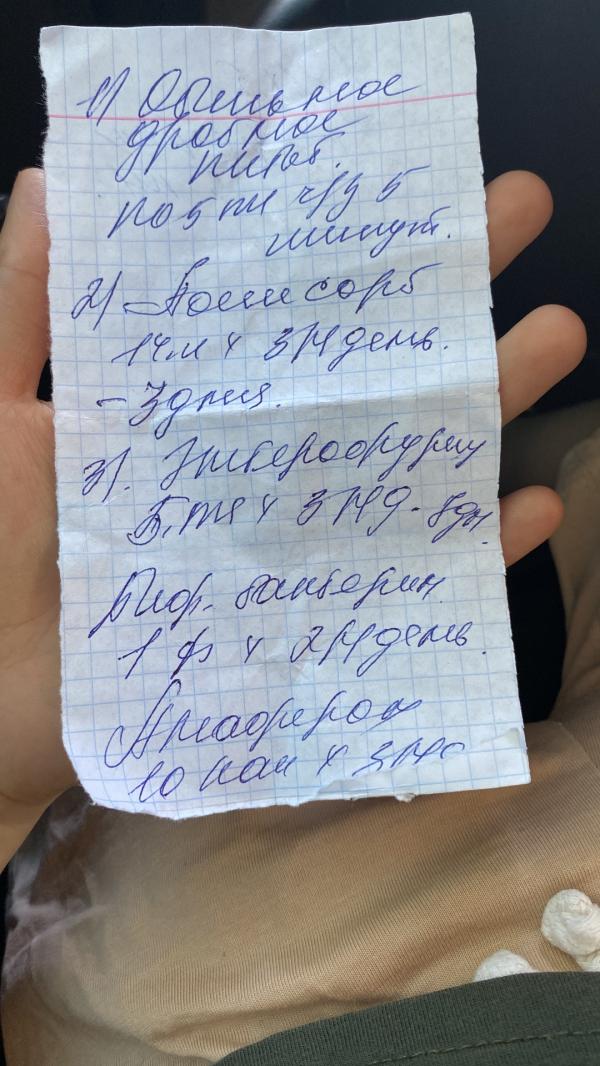 1) Обильное
дробное
питьё.
по 5 мл ч/з 5
минут.
2) Полисорб
1 ч.л х 3 р/день.
- 3 дня.
3). Энтерофурил
5. мл х 3 р/д.
Биф. бактерин
1 ф х 2 р/день.
10 кап х 3 р/д